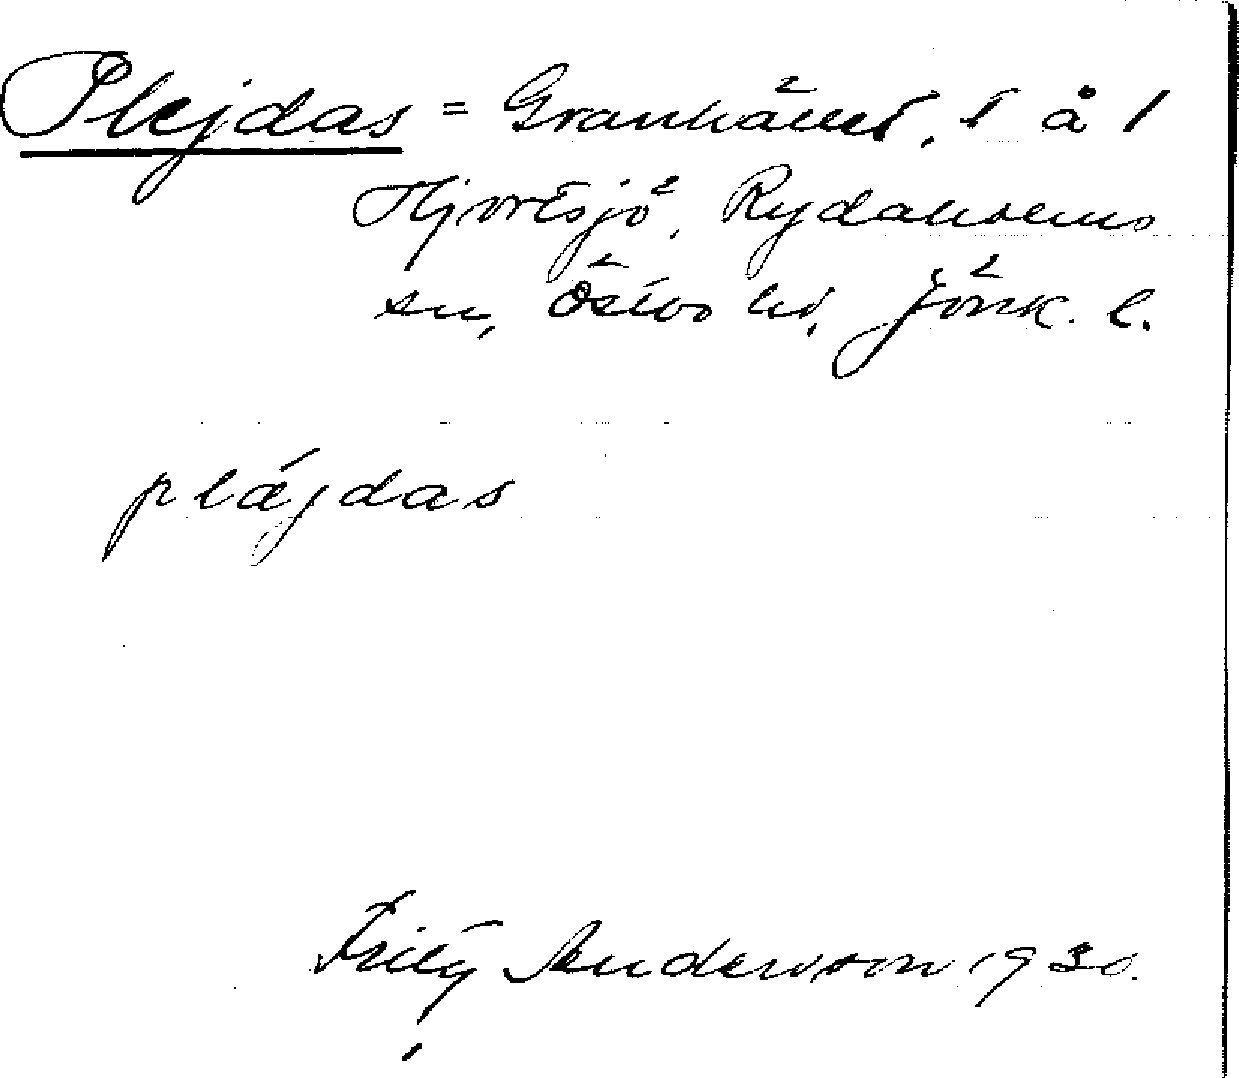 Plejdas = Granhäuet, 1 å 1
Hjortsjö, Rydaholms
sn, Östbo hd, Jönk. l.
plájdas
Fritz Anderson 1930.